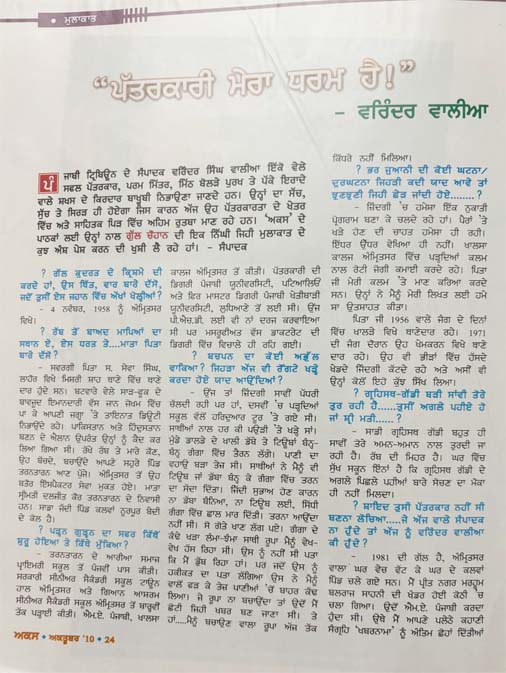 ਮੁਲਾਕਾਤ
“ਪੱਤਰਕਾਰੀ ਮੇਰਾ ਧਰਮ ਹੈ!”
- ਵਰਿੰਦਰ ਵਾਲੀਆ
ਪੰਜਾਬੀ ਟ੍ਰਿਬਿਊਨ ਦੇ ਸੰਪਾਦਕ ਵਰਿੰਦਰ ਸਿੰਘ ਵਾਲੀਆ ਇੱਕੋ ਵੇਲੇ
ਸਫਲ ਪੱਤਰਕਾਰ, ਪਰਮ ਮਿੱਤਰ, ਮਿੱਠ ਬੋਲੜੇ ਪੁਰਖ ਤੇ ਪੱਕੇ ਇਰਾਦੇ
ਵਾਲੇ ਸ਼ਖਸ ਦੇ ਕਿਰਦਾਰ ਬਾਖੂਬੀ ਨਿਭਾਉਣਾ ਜਾਣਦੇ ਹਨ। ਉਨ੍ਹਾਂ ਦਾ ਸੱਚ,
ਸੁੱਚ ਤੇ ਸਿਰੜ ਹੀ ਹੋਏਗਾ ਜਿਸ ਕਾਰਨ ਅੱਜ ਉਹ ਪੱਤਰਕਾਰਤਾ ਦੇ ਖੇਤਰ
ਵਿੱਚ ਅਤੇ ਸਾਹਿਤਕ ਪਿੜ ਵਿੱਚ ਅਹਿਮ ਰੁਤਬਾ ਮਾਣ ਰਹੇ ਹਨ। ‘ਅਕਸ’ ਦੇ
ਪਾਠਕਾਂ ਲਈ ਉਨ੍ਹਾਂ ਨਾਲ ਗੁੱਲ ਚੌਹਾਨ ਦੀ ਇਕ ਨਿੱਘੀ ਜਿਹੀ ਮੁਲਾਕਾਤ ਦੇ
ਕੁਝ ਅੰਸ਼ ਪੇਸ਼ ਕਰਨ ਦੀ ਖੁਸ਼ੀ ਲੈ ਰਹੇ ਹਾਂ। - ਸੰਪਾਦਕ
? ਗੱਲ ਕੁਦਰਤ ਦੇ ਕ੍ਰਿਸ਼ਮੇ ਦੀ
ਕਰਦੇ ਹਾਂ, ਉਸ ਥਿੱਤ, ਵਾਰ ਬਾਰੇ ਦੱਸੋ,
ਜਦੋਂ ਤੁਸੀਂ ਇਸ ਜਹਾਨ ਵਿੱਚ ਅੱਖਾਂ ਖੋਲ੍ਹੀਆਂ?
- 4 ਨਵੰਬਰ, 1958 ਨੂੰ ਅੰਮ੍ਰਿਤਸਰ
ਵਿਖੇ।
? ਰੱਬ ਤੋਂ ਬਾਅਦ ਮਾਪਿਆਂ ਦਾ
ਸਥਾਨ ਏ, ਇਸ ਧਰਤ ਤੇ....ਮਾਤਾ ਪਿਤਾ
ਬਾਰੇ ਦੱਸੋ?
- ਸਵਰਗੀ ਪਿਤਾ ਸ. ਸੇਵਾ ਸਿੰਘ,
ਲਾਹੌਰ ਵਿਖੇ ਮਿਸਰੀ ਸ਼ਾਹ ਥਾਣੇ ਵਿੱਚ ਥਾਣੇ
ਦਾਰ ਹੁੰਦੇ ਸਨ। ਬਟਵਾਰੇ ਵੇਲੇ ਸਾੜ-ਫੂਕ ਦੇ
ਬਾਵਜੂਦ ਇਮਾਨਦਾਰੀ ਵੱਸ ਜਾਨ ਜੋਖਮ ਵਿੱਚ
ਪਾ ਕੇ ਆਪਣੀ ਜਗ੍ਹਾ 'ਤੇ ਤਾਇਨਾਤ ਡਿਊਟੀ
ਨਿਭਾਉਂਦੇ ਰਹੇ। ਪਾਕਿਸਤਾਨ ਅਤੇ ਹਿੰਦੁਸਤਾਨ
ਬਣਨ ਦੇ ਐਲਾਨ ਉਪਰੰਤ ਉਨ੍ਹਾਂ ਨੂੰ ਕੈਦ ਕਰ
ਲਿਆ ਗਿਆ ਸੀ। ਰੱਖੇ ਰੱਬ ਤੇ ਮਾਰੇ ਕੌਣ,
ਉਹ ਬੱਚਦੇ, ਬਚਾਉਂਦੇ ਆਪਣੇ ਸਹੁਰੇ ਪਿੰਡ
ਤਰਨਤਾਰਨ ਆਣ ਪੁੱਜੇ। ਅੰਮ੍ਰਿਤਸਰ ਤੋਂ ਉਹ
ਬਤੌਰ ਇੰਸਪੈਕਟਰ ਸੇਵਾ ਮੁਕਤ ਹੋਏ। ਮਾਤਾ
ਸ੍ਰੀਮਤੀ ਦਲਜੀਤ ਕੌਰ ਤਰਨਤਾਰਨ ਦੇ ਨਿਵਾਸੀ
ਹਨ। ਸਾਡਾ ਜੱਦੀ ਪਿੰਡ ਕਲਵਾਂ ਨੂਰਪੁਰ ਬੇਦੀ
ਦੇ ਕੋਲ ਹੈ।
? ਪੜ੍ਹਨ ਗੁੜ੍ਹਨ ਦਾ ਸਫਰ ਕਿੱਥੋਂ
ਸ਼ੁਰੂ ਹੋਇਆ ਤੇ ਕਿੱਥੇ ਮੁੱਕਿਆ?
- ਤਰਨਤਾਰਨ ਦੇ ਆਰੀਆ ਸਮਾਜ
ਪ੍ਰਾਇਮਰੀ ਸਕੂਲ ਤੋਂ ਪੰਜਵੀਂ ਪਾਸ ਕੀਤੀ।
ਸਰਕਾਰੀ ਸੀਨੀਅਰ ਸੈਕੰਡਰੀ ਸਕੂਲ ਟਾਊਨ
ਹਾਲ ਅੰਮ੍ਰਿਤਸਰ ਅਤੇ ਗਿਆਨ ਆਸ਼ਰਮ
ਸੀਨੀਅਰ ਸੈਕੰਡਰੀ ਸਕੂਲ ਅੰਮ੍ਰਿਤਸਰ ਤੋਂ ਬਾਰ੍ਹਵੀਂ
ਤੱਕ ਪੜ੍ਹਾਈ ਕੀਤੀ। ਐਮ.ਏ. ਪੰਜਾਬੀ, ਖਾਲਸਾ
ਕਾਲਜ ਅੰਮ੍ਰਿਤਸਰ ਤੋਂ ਕੀਤੀ। ਪੱਤਰਕਾਰੀ ਦੀ
ਡਿਗਰੀ ਪੰਜਾਬੀ ਯੂਨੀਵਰਸਿਟੀ, ਪਟਿਆਲਿਓਂ
ਅਤੇ ਫਿਰ ਮਾਸਟਰ ਡਿਗਰੀ ਪੰਜਾਬ ਖੇਤੀਬਾੜੀ
ਯੂਨੀਵਰਸਿਟੀ, ਲੁਧਿਆਣੇ ਤੋਂ ਲਈ ਸੀ। ਉਂਜ
ਪੀ.ਐਚ.ਡੀ. ਲਈ ਵੀ ਨਾਂ ਦਰਜ ਕਰਵਾਇਆ
ਸੀ ਪਰ ਮਸਰੂਫੀਅਤ ਵੱਸ ਡਾਕਟਰੇਟ ਦੀ
ਡਿਗਰੀ ਵਿੱਚ ਵਿਚਾਲੇ ਹੀ ਰਹਿ ਗਈ।
? ਬਚਪਨ ਦਾ ਕੋਈ ਅਭੁੱਲ
ਵਾਕਿਆ? ਜਿਹੜਾ ਅੱਜ ਵੀ ਰੌਂਗਟੇ ਖੜ੍ਹੇ
ਕਰਦਾ ਹੋਏ ਯਾਦ ਆਉਂਦਿਆਂ?
- ਉਂਜ ਤਾਂ ਜ਼ਿੰਦਗੀ ਸਾਵੀਂ ਪੱਧਰੀ
ਚੱਲਦੀ ਰਹੀ ਪਰ ਹਾਂ, ਦਸਵੀਂ 'ਚ ਪੜ੍ਹਦਿਆਂ
ਸਕੂਲ ਵੱਲੋਂ ਹਰਿਦੁਆਰ ਟੂਰ 'ਤੇ ਗਏ ਸੀ।
ਸਾਥੀਆਂ ਨਾਲ ਹਰ ਕੀ ਪਉੜੀ 'ਤੇ ਖੜ੍ਹੇ ਸਾਂ।
ਮੁੰਡੇ ਡਾਲਡੇ ਦੇ ਖਾਲੀ ਡੱਬੇ ਤੇ ਟਿਊਬਾਂ ਬੰਨ੍ਹ-
ਬੰਨ੍ਹ ਗੰਗਾ ਵਿੱਚ ਤੈਰਨ ਲੱਗੇ। ਪਾਣੀ ਦਾ
ਵਹਾਉ ਬੜਾ ਤੇਜ਼ ਸੀ। ਸਾਥੀਆਂ ਨੇ ਮੈਨੂੰ ਵੀ
ਟਿਊਬ ਜਾਂ ਡੱਬਾ ਬੰਨ੍ਹ ਕੇ ਗੰਗਾ ਵਿੱਚ ਤਰਨ
ਦਾ ਸੱਦਾ ਦਿੱਤਾ। ਜਿੱਦੀ ਸੁਭਾਅ ਹੋਣ ਕਾਰਨ
ਨਾ ਡੱਬਾ ਬੰਨਿਆ, ਨਾ ਟਿਊਬ ਲਈ, ਸਿੱਧੀ
ਗੰਗਾ ਵਿੱਚ ਛਾਲ ਮਾਰ ਦਿੱਤੀ। ਤਰਨਾ ਆਉਂਦਾ
ਨਹੀਂ ਸੀ। ਸੋ ਗੋਤੇ ਖਾਣ ਲੱਗ ਪਏ। ਗੰਗਾ ਦੇ
ਕੰਢੇ ਖੜਾ ਲੰਮਾ-ਝੰਮਾ ਸਾਥੀ ਰੂਪਾ ਮੈਨੂੰ ਵੇਖ-
ਵੇਖ ਹੱਸ ਰਿਹਾ ਸੀ। ਉਸ ਨੂੰ ਨਹੀਂ ਸੀ ਪਤਾ
ਕਿ ਮੈਂ ਡੁੱਬ ਰਿਹਾ ਹਾਂ। ਪਰ ਜਦੋਂ ਉਸ ਨੂੰ
ਹਕੀਕਤ ਦਾ ਪਤਾ ਲੱਗਿਆ ਉਸ ਨੇ ਮੈਨੂੰ
ਵਾਲੋਂ ਫੜ ਕੇ ਤੇਜ਼ ਪਾਣੀਆਂ 'ਚੋਂ ਬਾਹਰ ਕੱਢ
ਲਿਆ। ਜੇ ਰੂਪਾ ਨਾ ਬਚਾਉਂਦਾ ਤਾਂ ਉਦੋਂ ਮੈਂ
ਛੋਟੀ ਜਿਹੀ ਖਬਰ ਬਣ ਜਾਣਾ ਸੀ। ਤੇ
ਹਾਂ....ਮੈਨੂੰ ਬਚਾਉਣ ਵਾਲਾ ਰੂਪਾ ਅੱਜ ਤੱਕ
ਕਿੱਧਰੇ ਨਹੀਂ ਮਿਲਿਆ।
? ਭਰ ਜੁਆਨੀ ਦੀ ਕੋਈ ਘਟਨਾ/
ਦੁਰਘਟਨਾ ਜਿਹੜੀ ਕਦੀ ਯਾਦ ਆਵੇ ਤਾਂ
ਝੁਣਝੁਣੀ ਜਿਹੀ ਛੇੜ ਜਾਂਦੀ ਹੋਏ........?
- ਜ਼ਿੰਦਗੀ 'ਚ ਹਮੇਸ਼ਾ ਇਕ ਨੁਕਾਤੀ
ਪ੍ਰੋਗਰਾਮ ਬਣਾ ਕੇ ਚਲਦੇ ਰਹੇ ਹਾਂ। ਪੈਰਾਂ 'ਤੇ
ਖੜੇ ਹੋਣ ਦੀ ਚਾਹਤ ਹਮੇਸ਼ਾ ਹੀ ਰਹੀ।
ਇੱਧਰ ਉੱਧਰ ਵੇਖਿਆ ਹੀ ਨਹੀਂ। ਖਾਲਸਾ
ਕਾਲਜ ਅੰਮ੍ਰਿਤਸਰ ਵਿੱਚ ਪੜ੍ਹਦਿਆਂ ਕਲਮ
ਨਾਲ ਰੋਟੀ ਜੋਗੀ ਕਮਾਈ ਕਰਦੇ ਰਹੇ। ਪਿਤਾ
ਜੀ ਮੇਰੀ ਕਲਮ 'ਤੇ ਮਾਣ ਕਰਿਆ ਕਰਦੇ
ਸਨ। ਉਨ੍ਹਾਂ ਨੇ ਮੈਨੂੰ ਮੇਰੀ ਲਿਖਤ ਲਈ ਹਮੇ
ਸ਼ਾ ਉਤਸ਼ਾਹਤ ਕੀਤਾ।
ਪਿਤਾ ਜੀ 1956 ਵਾਲੇ ਜੰਗ ਦੇ ਦਿਨਾਂ
ਵਿੱਚ ਖਾਲੜੇ ਵਿਖੇ ਥਾਣੇਦਾਰ ਰਹੇ। 1971
ਦੀ ਜੰਗ ਦੌਰਾਨ ਉਹ ਖੇਮਕਰਨ ਵਿਖੇ ਥਾਣੇ
ਦਾਰ ਰਹੇ। ਉਹ ਵੀ ਭੀੜਾਂ ਵਿੱਚ ਹੱਸਦੇ
ਖੇਡਦੇ ਜ਼ਿੰਦਗੀ ਕੱਟਦੇ ਰਹੇ ਅਤੇ ਅਸੀਂ ਵੀ
ਉਨ੍ਹਾਂ ਕੋਲੋਂ ਇਹੋ ਕੁੱਝ ਸਿੱਖ ਲਿਆ।
? ਗ੍ਰਹਿਸਥ-ਗੱਡੀ ਬੜੀ ਸਾਂਵੀਂ ਤੋਰੇ
ਤੁਰ ਰਹੀ ਹੈ......ਤੁਸੀਂ ਅਗਲੇ ਪਹੀਏ ਹੋ
ਜਾਂ ਸ਼੍ਰੀ ਮਤੀ.....?
- ਸਾਡੀ ਗ੍ਰਹਿਸਥ ਗੱਡੀ ਬਹੁਤ ਹੀ
ਸਾਵੀਂ ਤੋਰੇ ਅਮਨ-ਅਮਾਨ ਨਾਲ ਤੁਰਦੀ ਜਾ
ਰਹੀ ਹੈ। ਰੱਬ ਦੀ ਮਿਹਰ ਹੈ। ਘਰ ਵਿੱਚ
ਸੁੱਖ ਸਕੂਨ ਇੰਨਾਂ ਹੈ ਕਿ ਗ੍ਰਹਿਸਥ ਗੱਡੀ ਦੇ
ਅਗਲੇ ਪਿਛਲੇ ਪਹੀਆਂ ਬਾਰੇ ਸੋਚਣ ਦਾ ਮੌਕਾ
ਹੀ ਨਹੀਂ ਮਿਲਦਾ।
? ਸ਼ਾਇਦ ਤੁਸੀਂ ਪੱਤਰਕਾਰ ਨਹੀਂ ਸੀ
ਬਣਨਾ ਲੋਚਿਆ.....ਜੇ ਅੱਜ ਵਾਲੇ ਸੰਪਾਦਕ
ਨਾ ਹੁੰਦੇ ਤਾਂ ਅੱਜ ਨੂੰ ਵਰਿੰਦਰ ਵਾਲੀਆ
ਕੀ ਹੁੰਦੇ?
- 1981 ਦੀ ਗੱਲ ਹੈ, ਅੰਮ੍ਰਿਤਸਰ
ਵਾਲਾ ਘਰ ਵੇਚ ਵੱਟ ਕੇ ਘਰ ਦੇ ਕਲਵਾਂ
ਪਿੰਡ ਚਲੇ ਗਏ ਸਨ। ਮੈਂ ਪ੍ਰੀਤ ਨਗਰ ਮਰਹੂਮ
ਬਲਰਾਜ ਸਾਹਨੀ ਦੀ ਖੰਡਰ ਹੋਈ ਕੋਠੀ 'ਚ
ਚਲਾ ਗਿਆ। ਉਦੋਂ ਐਮ.ਏ. ਪੰਜਾਬੀ ਕਰਦਾ
ਹੁੰਦਾ ਸੀ। ਉਥੇ ਮੈਂ ਆਪਣੇ ਪਲੇਠੇ ਕਹਾਣੀ
ਸੰਗ੍ਰਹਿ 'ਖਬਰਨਾਮਾ' ਨੂੰ ਅੰਤਿਮ ਛੋਹਾਂ ਦਿੰਤੀਆਂ
ਅਕਸ • ਅਕਤੂਬਰ '10 • 24